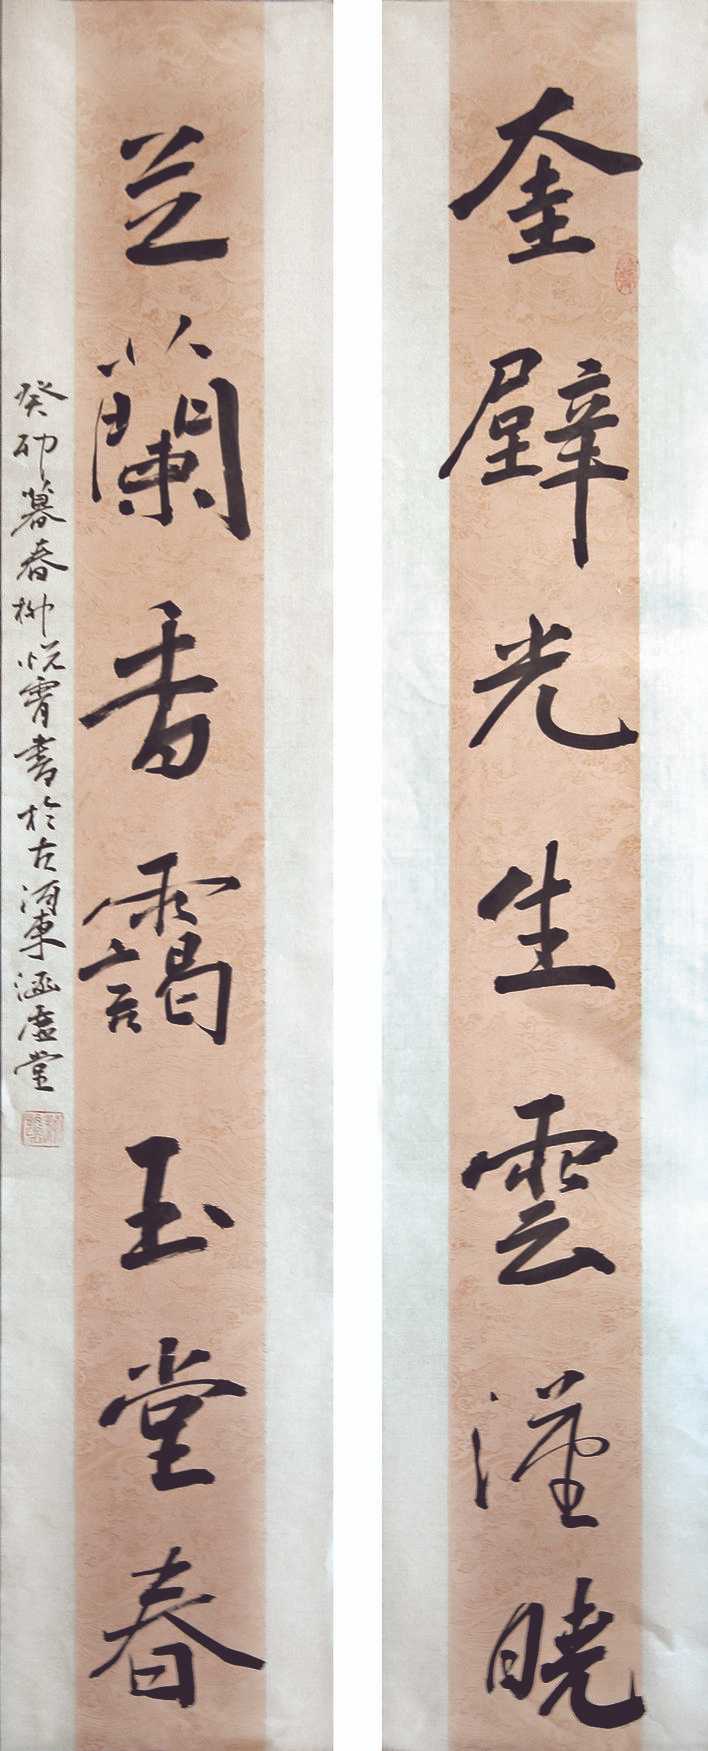 奎壁光生雲漢曉
芝蘭香靄玉堂春
癸卯暮春柳悦霄書於古河東涵虚堂